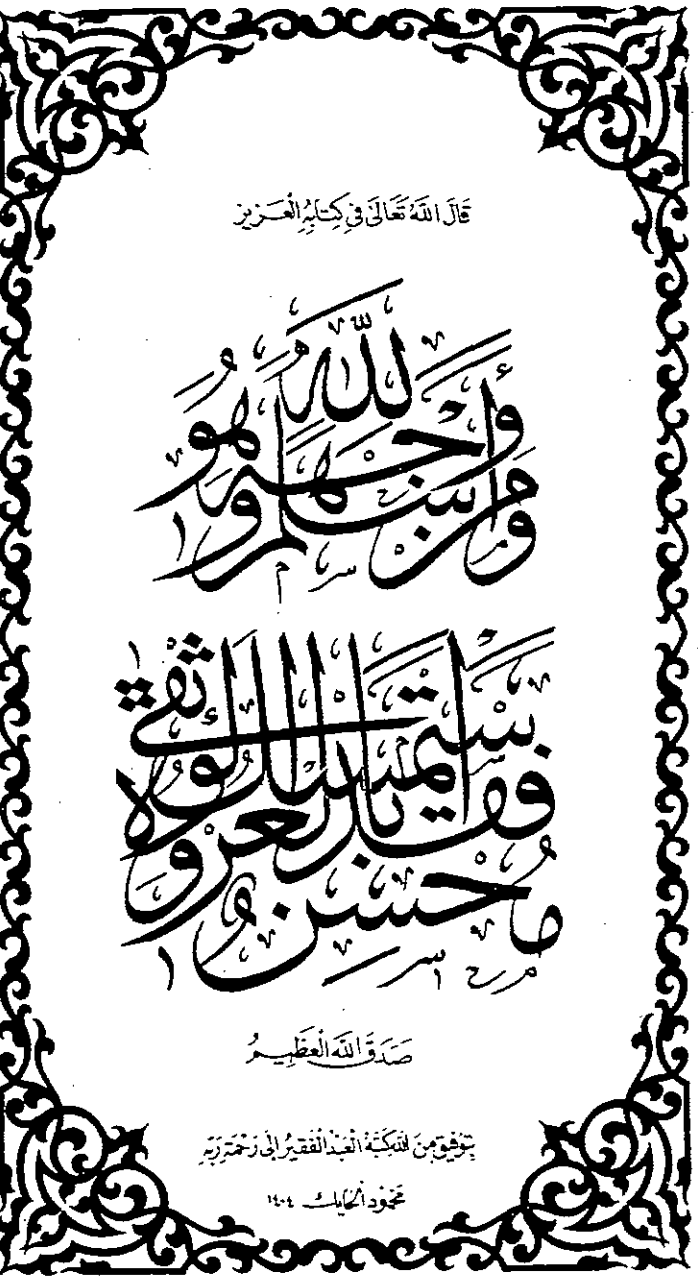 قَالَ اللَّهُ تَعَالَىٰ فِي كِتَابِهِ الْعَزِيزِ
وَمَن يُسْلِمْ وَجْهَهُ إِلَى اللَّهِ وَهُوَ
مُحْسِنٌ فَقَدِ اسْتَمْسَكَ بِالْعُرْوَةِ الْوُثْقَىٰ
صَدَقَ اللَّهُ الْعَظِيمُ
بِتَوْفِيقٍ مِنَ اللَّهِ كَتَبَهُ الْعَبْدُ الْفَقِيرُ إِلَى رَحْمَةِ رَبِّهِ
مَحْمُود الْحَايِك ١٤٠٤